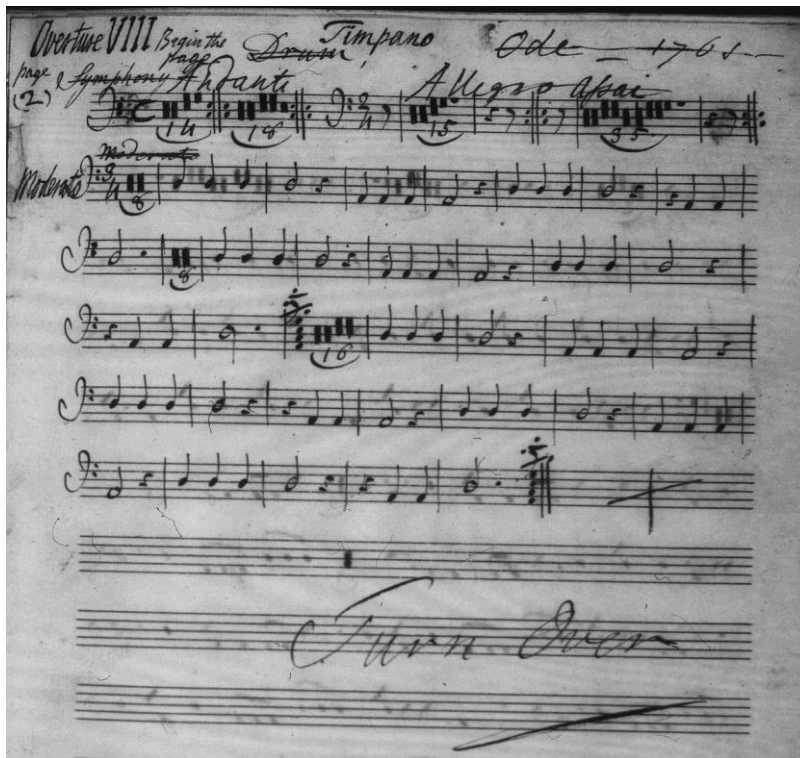 Overture VIII Begin the page Drum Timpano Ode - 1761
page (2) Symphony Andante Allegro assai
14 18 2 4 15 35
Moderato
Moderato 3 4 8
8
16
Turn Over